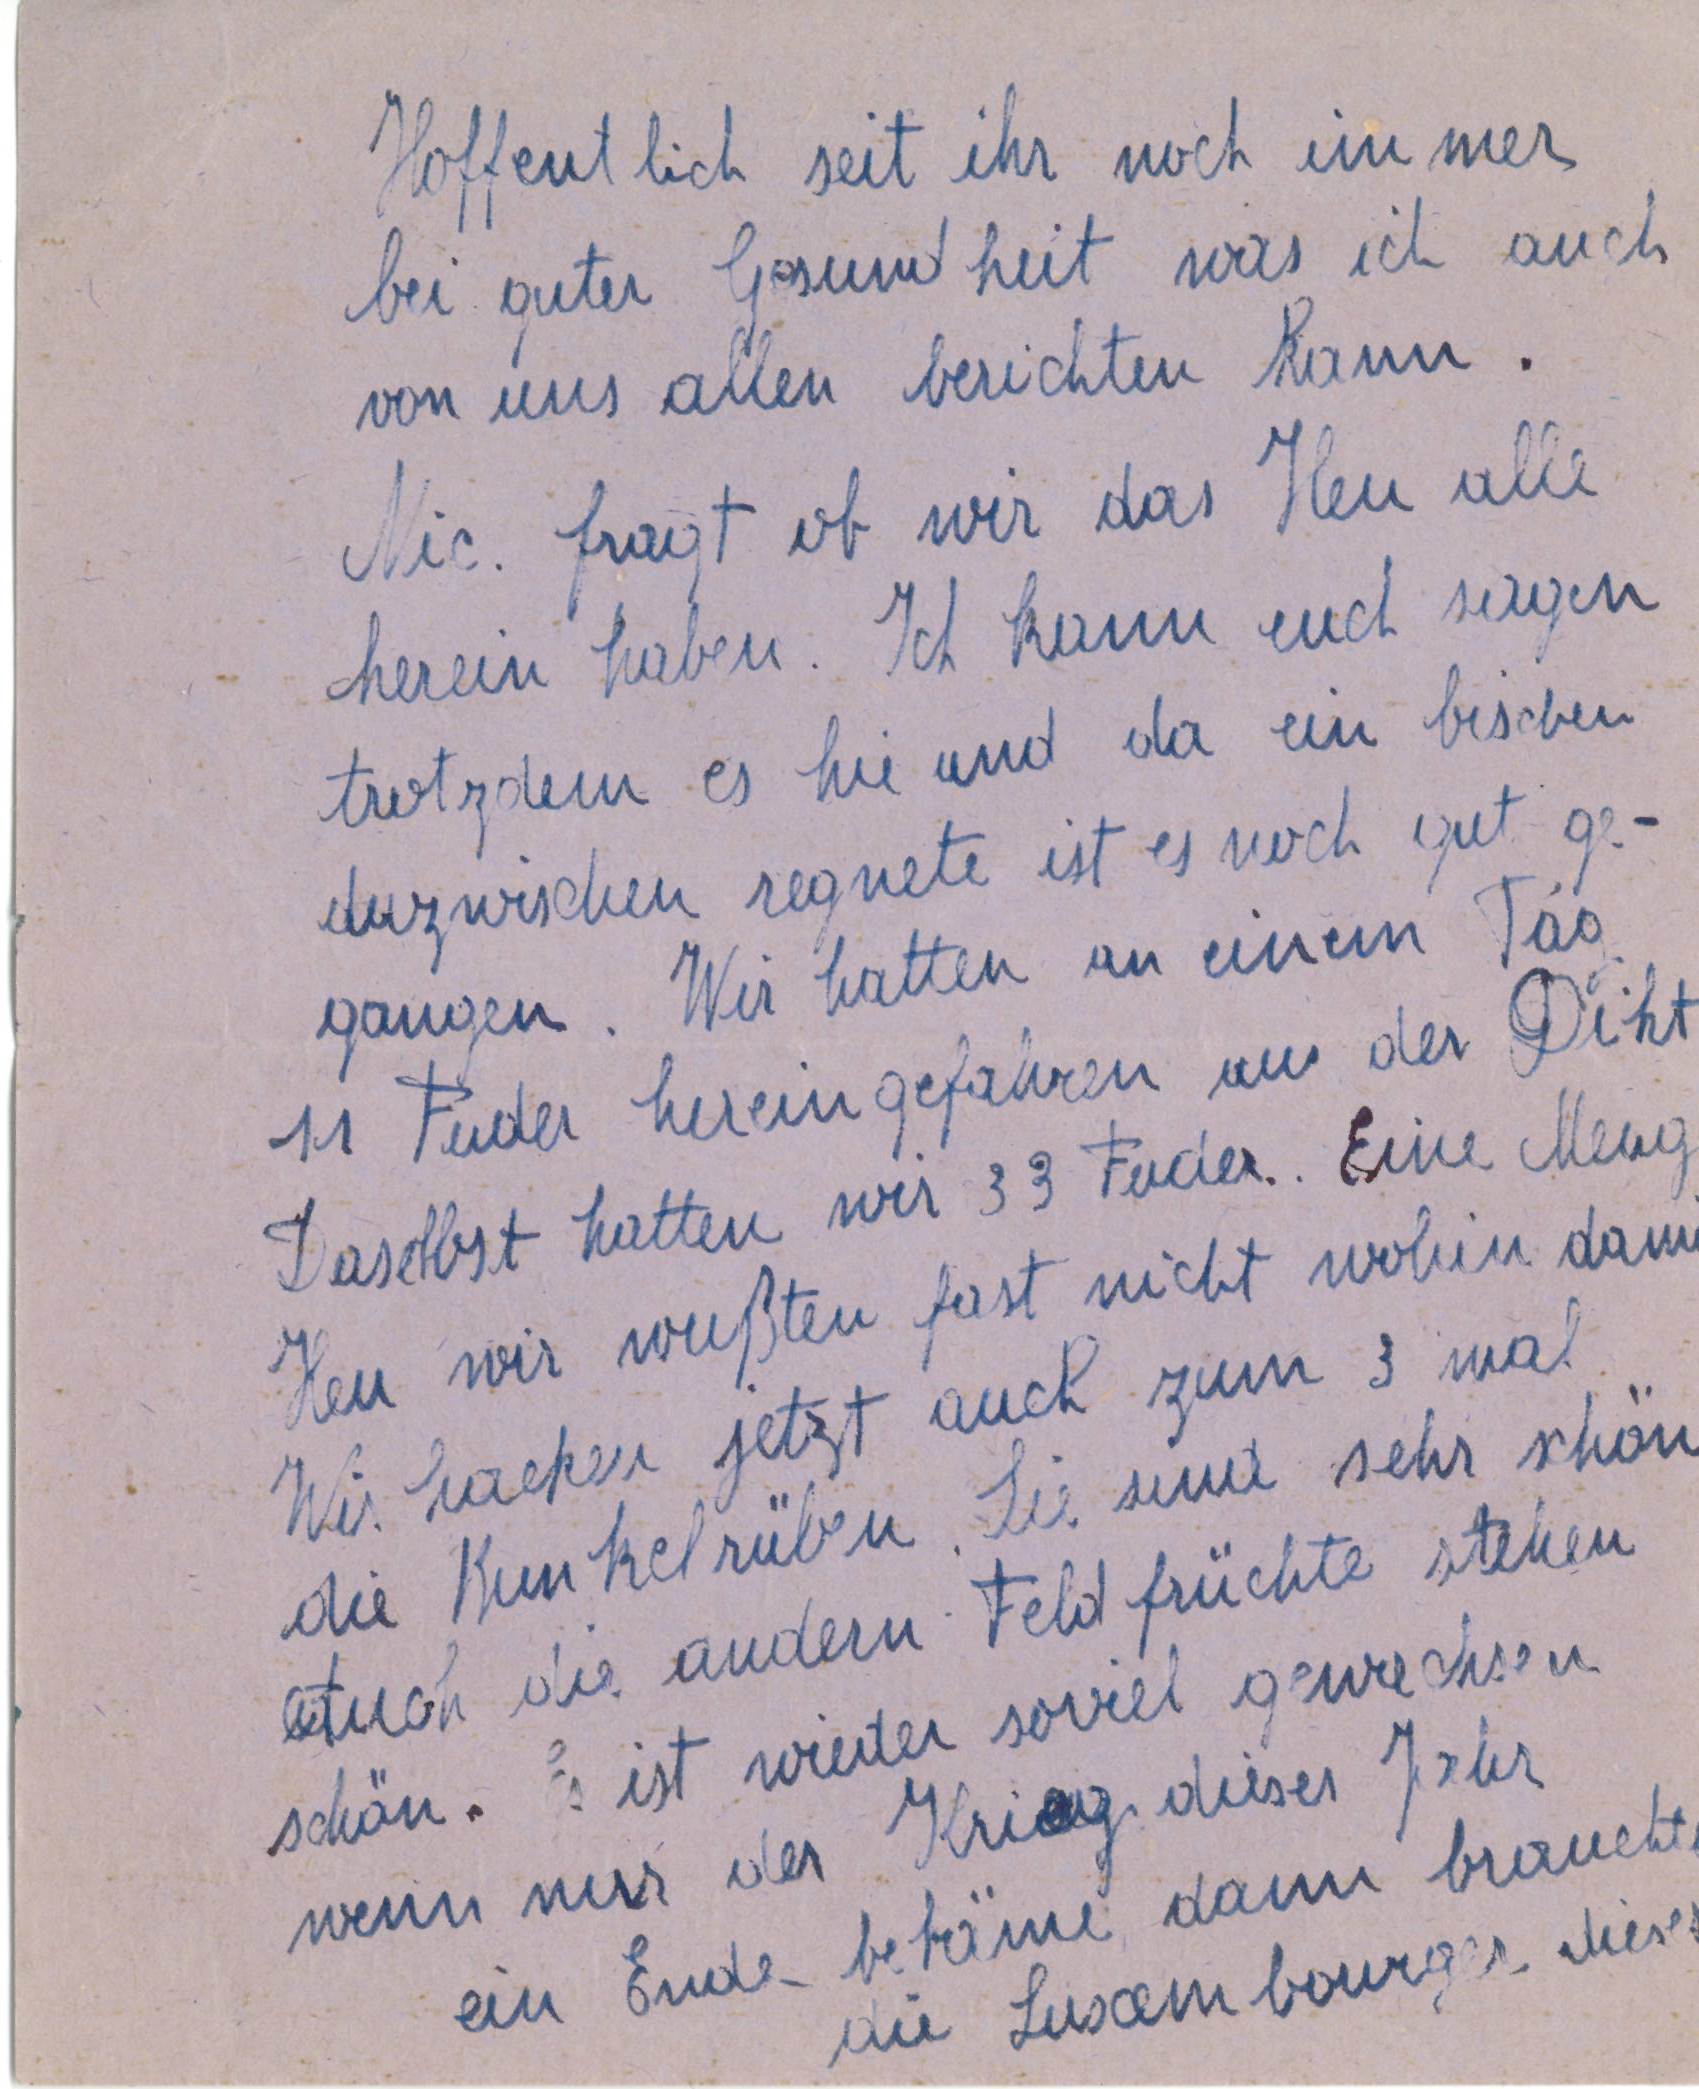 Hoffentlich seit ihr noch immer
bei guter Gesundheit was ich auch
von uns allen berichten kann.
Nic. fragt ob wir das Heu alle
herein haben. Ich kann euch sagen
trotzdem es hie und da ein bischen
dazwischen regnete ist es noch gut ge-
gangen. Wir hatten an einem Tag
11 Fuder hereingefahren aus der Diht
Daselbst hatten wir 33 Fuder. Eine Meng
Heu wir wußten fast nicht wohin dami
Wir hacken jetzt auch zum 3 mal
die Runkelrüben. Sie sind sehr schön
Auch die andern Feldfrüchte stehen
schön. Es ist wieder soviel gewachsen
wenn nur der Krieg dieses Jahr
ein Ende bekäme dann brauchte
die Luxembourger dieses